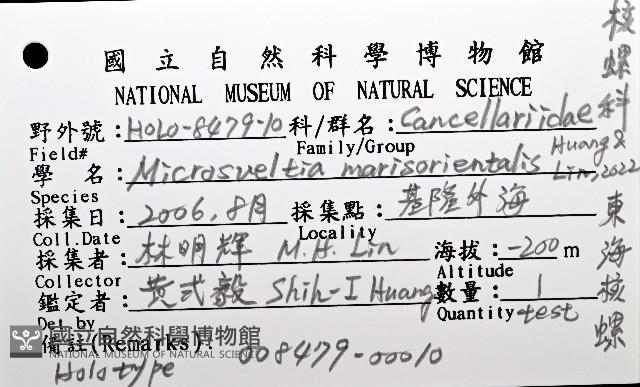 國立自然科學博物館
NATIONAL MUSEUM OF NATURAL SCIENCE
野外號:HOLO-8479-10 科/群名:Cancellariidae
Field# Family/Group
學 名:Microsveltia marisorientalis Huang & Lin, 2022
Species
採集日:2006.8月 採集點:基隆外海
Coll.Date Locality
採集者:林明輝 M.H. Lin 海拔:-200 m
Collector Altitude
鑑定者:黃式毅 Shih-I Huang 數量:1
Det.by Quantity test
備註(Remarks): 008479-00010
Holotype
核螺科
東海核螺
國立自然科學博物館
NATIONAL MUSEUM OF NATURAL SCIENCE